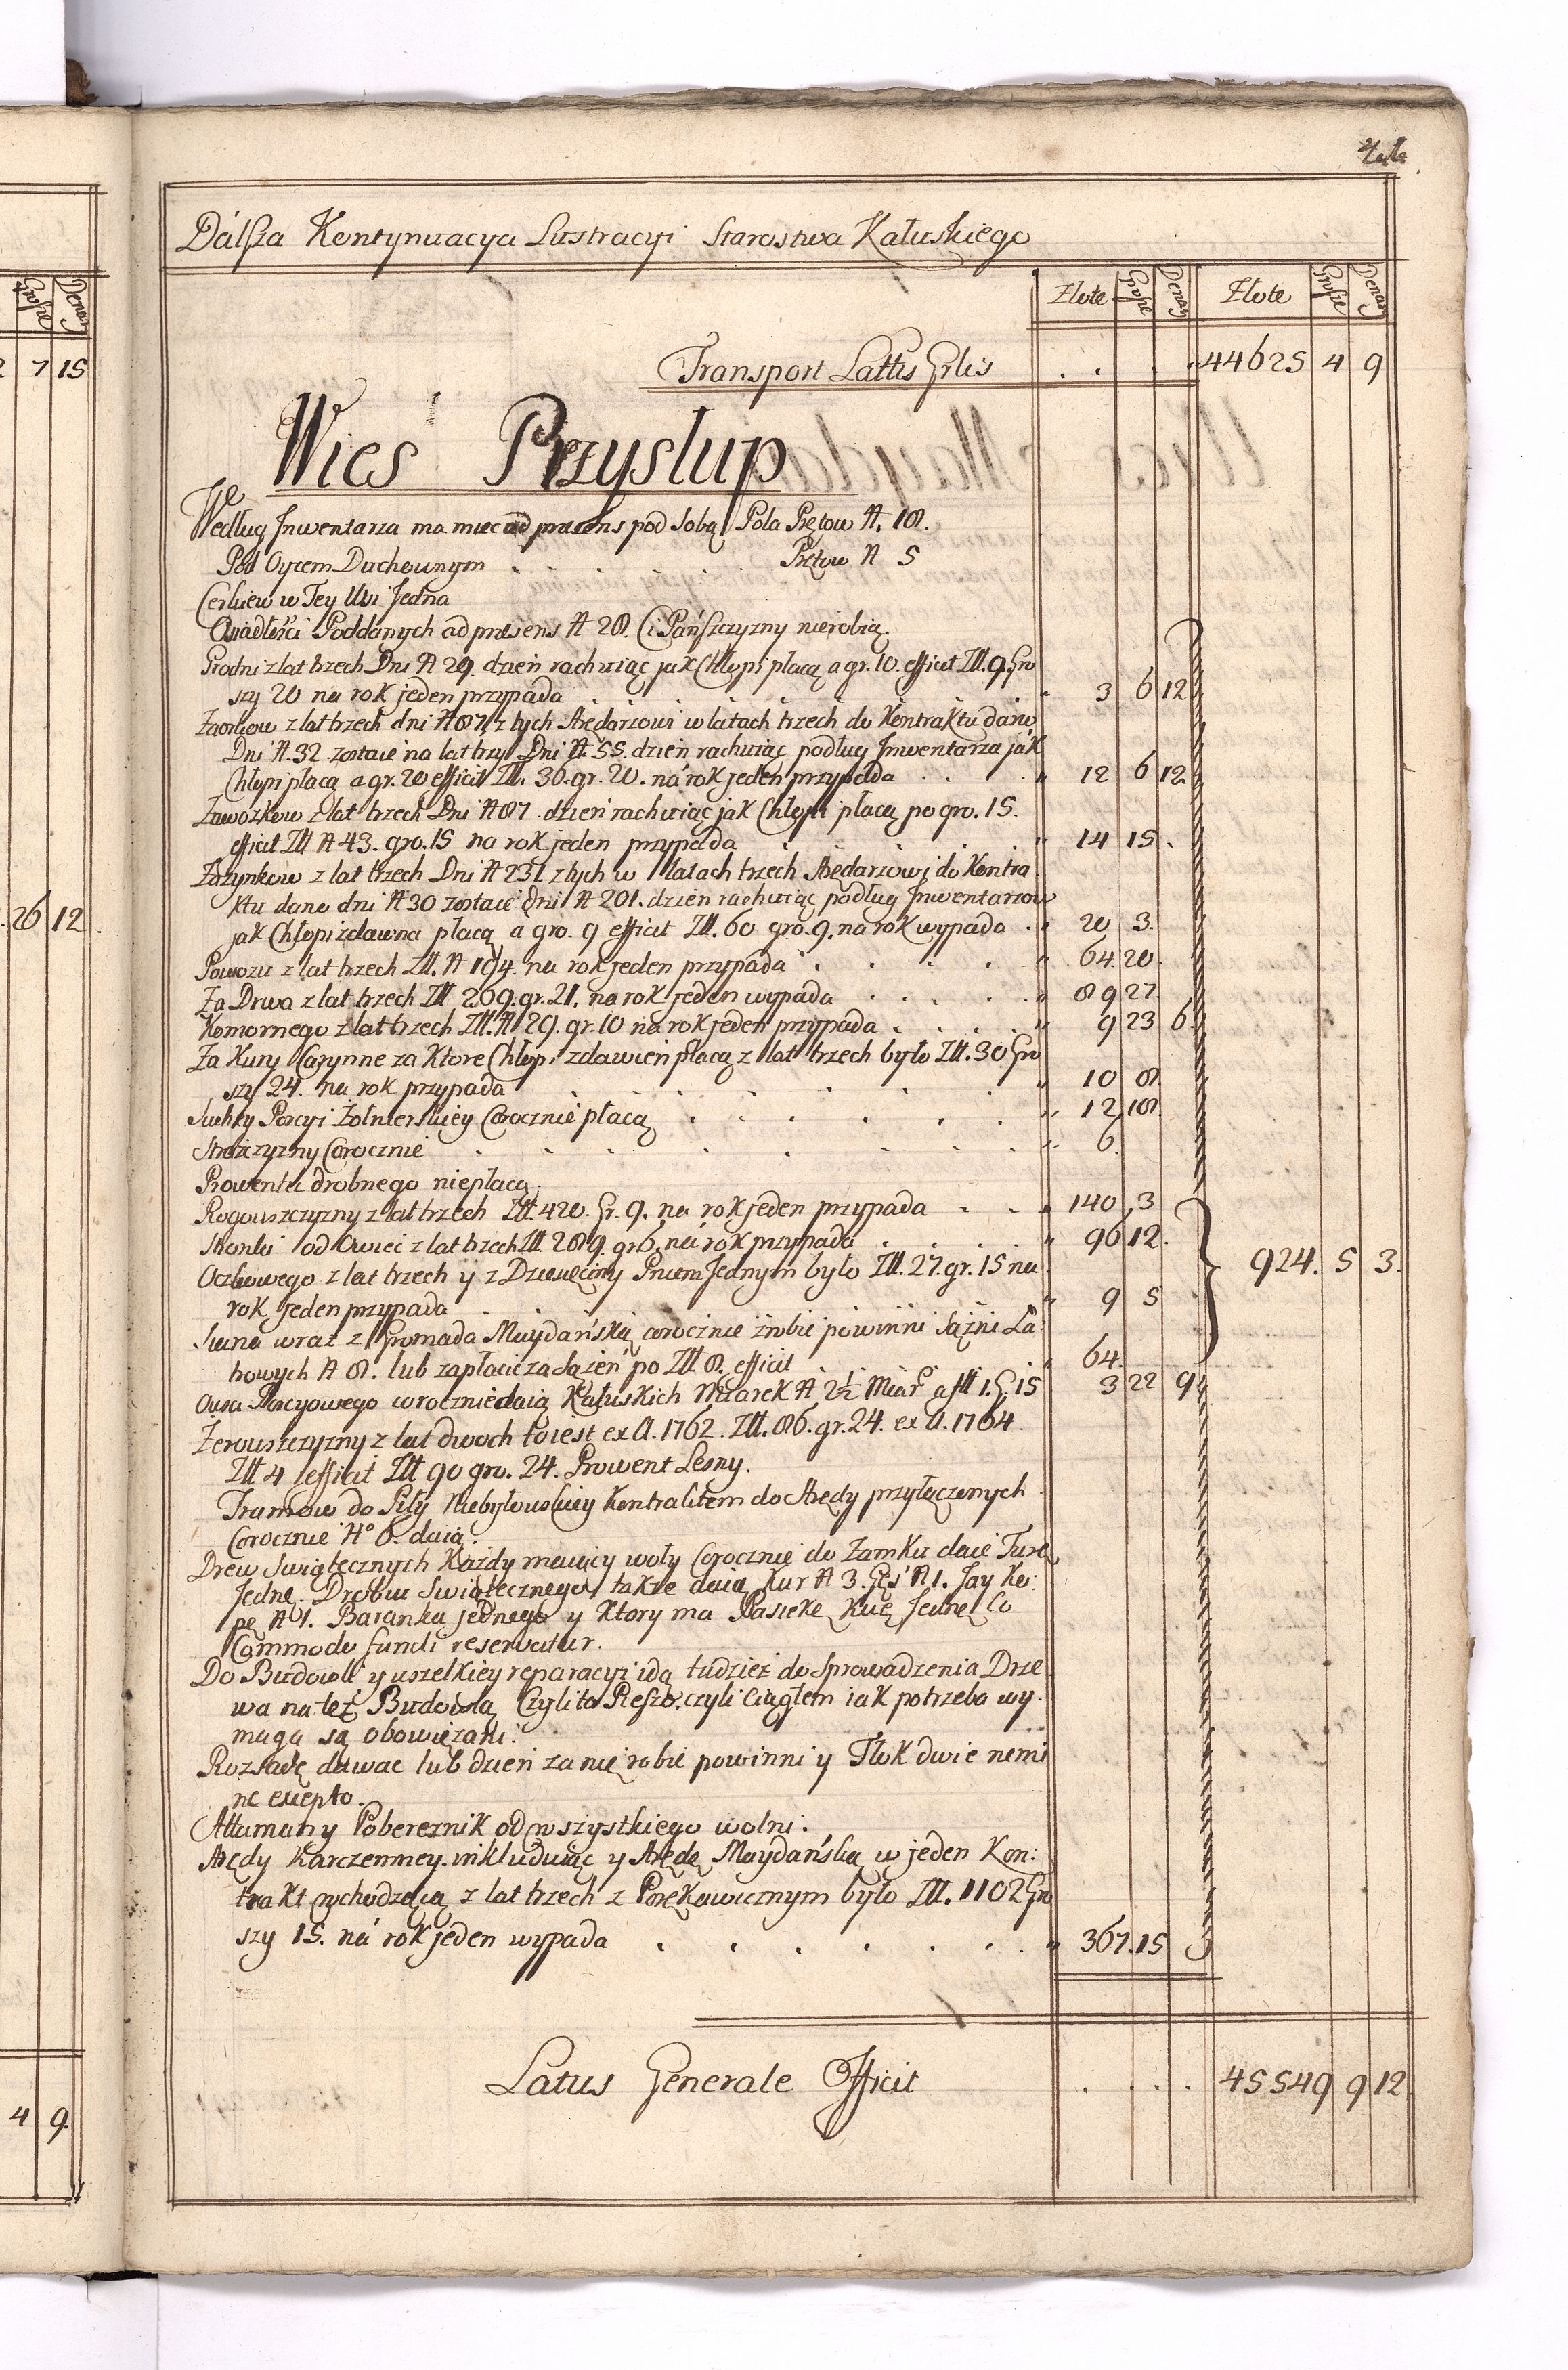 Dálsza Kontynuacya Lustracyi Starostwa Kałuskiego
Złote Grosze Denary Złote Grosze Denary
Transport Lattis Grlis . . . . 44625 4 9
Wies Przysłup
Według Inwentarza ma miec ad præsens pod Sobą Pola Prętow N. 18.
Pod Oycem Duchownym . . . . . Prętow N 5
Cerkiew w Tey Wsi Jedna
Osiadłości Poddanych ad præsens N 28. Ci Pańszczyzny nierobią.
z lat trzech Dni N 29. dzień rachuiąc jak Chłopi płacą a gr. 10. efficit Złł. 9. Gro
szy 20 na rok jeden przypada . . . . . 3 6 12
Zaorkow z lat trzech dni N 87. z tych Arędarzowi w latach trzech do Kontraktu dano
Dni N. 32 zostaie na lat trzy Dni N. 55. dzień rachuiąc podług Inwentarza ják
Chłopi płacą a gr. 20 efficit Złł. 36. gr. 20. ná rok jeden przypada . . . 12 6 12.
Zawozkow z lat trzech Dni N 87. dzień rachuiąc jak Chłopi płacą po gro. 15.
efficit Złł N 43. gro. 15 na rok jeden przypada . . . . 14 15 .
Zażynkow z lat trzech Dni N 231. z tych w latach trzech Arędarzowi do Kontra
ktu dano dni N 30 zostaie dni N 201. dzień rachuiąc podług Inwentarzow
jak Chłopi zdawna płacą a gro. 9 efficit Złł. 60 gro. 9. na rok wypada . 20 3.
Powozu z lat trzech Złł. N 194. na rok jeden przypada . . . . 64. 20.
Za Drwa z lat trzech Złł 269. gr. 21. na rok jeden wypada . . . . . 89 27.
Komornego z lat trzech Złł. N 29. gr. 10 na rok jeden przypada . . . . 9 23 6.
Za Kury Czynne za Ktore Chłopi zdawien płacą z lat trzech było Złł. 30 Gro
szy 24. na rok przypada . . . . . . 10 8.
Suchey Porcyi Żołnierskiey Corocznie płacą . . . . . . 12 18.
Stróżczyzny Corocznie . . . . . . . 6.
Prowentu drobnego niepłacą.
Rogowszczyzny z lat trzech Złł. 420. Gr. 9. na rok jeden przypada . . . 140 3
od Owiec z lat trzech Złł. 289. gr 6. ná rok przypada . . . . 96 12.
Oczkowego z lat trzech y z Dziesięciny Pniem Jednym było Złł. 27. gr. 15 na
rok jeden przypada . . . . . . 9 5 924. 5 3.
Siana wraz z Gromada Maydańską corocznie zrobic powinni Sążni Ła:
kowych N 8. lub zapłacic za Sążeń po Złł 8. efficit . . . 64.
Owsa Porcyowego corocznie daią Kałuskich Miarek N 2½ Miar ą a Złł 1. G. 15 3 22 9.
Żerowszczyzny z lat dwoch to iest ex A. 1762. Złł. 86. gr. 24. ex A. 1764.
Złł 4 efficit Złł 90 gro. 24. Prowent Lesny.
Tramow do Piły Niebyłowskiey Kontraktem do Arędy przyłączonych
Corocznie No 6. daią.
Drew Swiątecznych Kazdy maiący woły Corocznie do Zamku daie Furę
Jednę. Drobiu Swiątecznego także daią Kur N 3. Gęś N 1. Jay Ko:
pę N 1. Baranka jednego y Ktory ma Pasiekę Jednę Co
Commodo fundi reservatur.
Do Budowli y wszelkiey reparacyi idą tudzież do Sprowadzenia Drze
wa na też Budowlą Czyli to Pieszo, czyli Ciągłem iak potrzeba wy.
maga są obowiązani.
Rozsadę dawac lub dzień za nię robic powinni y Tłok dwie nemi
ne exepto.
Attamany Pobereznik od wszystkiego wolni.
Arędy Karczemney inkluduiąc y Arędę Maydańską w jeden Kon:
trakt wchodzącą z lat trzech z Porękawicznym było Złł. 1102 Gro
szy 15. ná rok jeden wypada . . . . . . . 367. 15
Latus Generale Efficit . . . . 45549 9 12